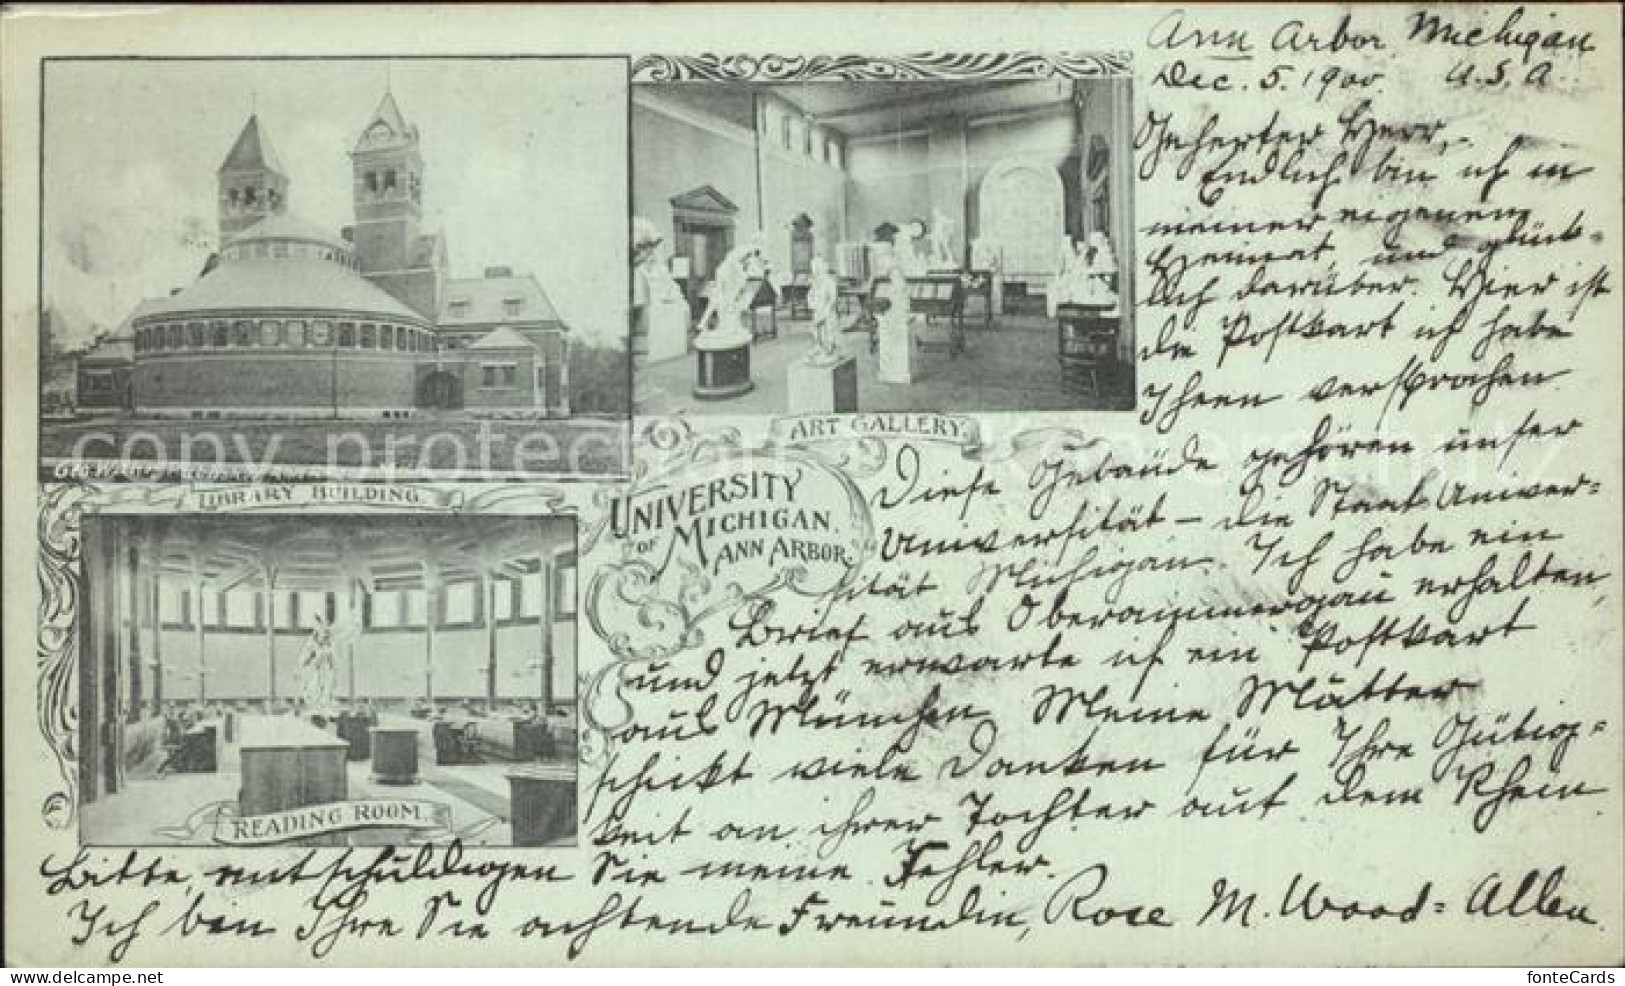 Ann Arbor, Michigan
Dec. 5. 1900. U.S.A.
Geherter Herr,-
Endlich bin ich in
meiner eigenen
Heimat, und glück-
lich darüber. Hier ist
die Postkart ich habe
Ihnen versprochen
Diese Gebäude gehören unser
Universität – die Staat Univer=
sität Michigan. Ich habe ein
Brief aus Oberammergau erhalten,
und jetzt erwarte ich ein Postkart
aus München Meine Mütter
schickt viele Danken für Ihre Gütig=
keit an ihrer Tochter auf dem Rhein.
Bitte, entschuldigen Sie meine Fehler.
Ich bin Ihre Sie achtende Freundin, Rose M. Wood=Allen.
ART GALLERY.
LIBRARY BUILDING.
UNIVERSITY
OF MICHIGAN.
ANN ARBOR.
READING ROOM.
copy protection
https://www.delcampe.net
fonteCards